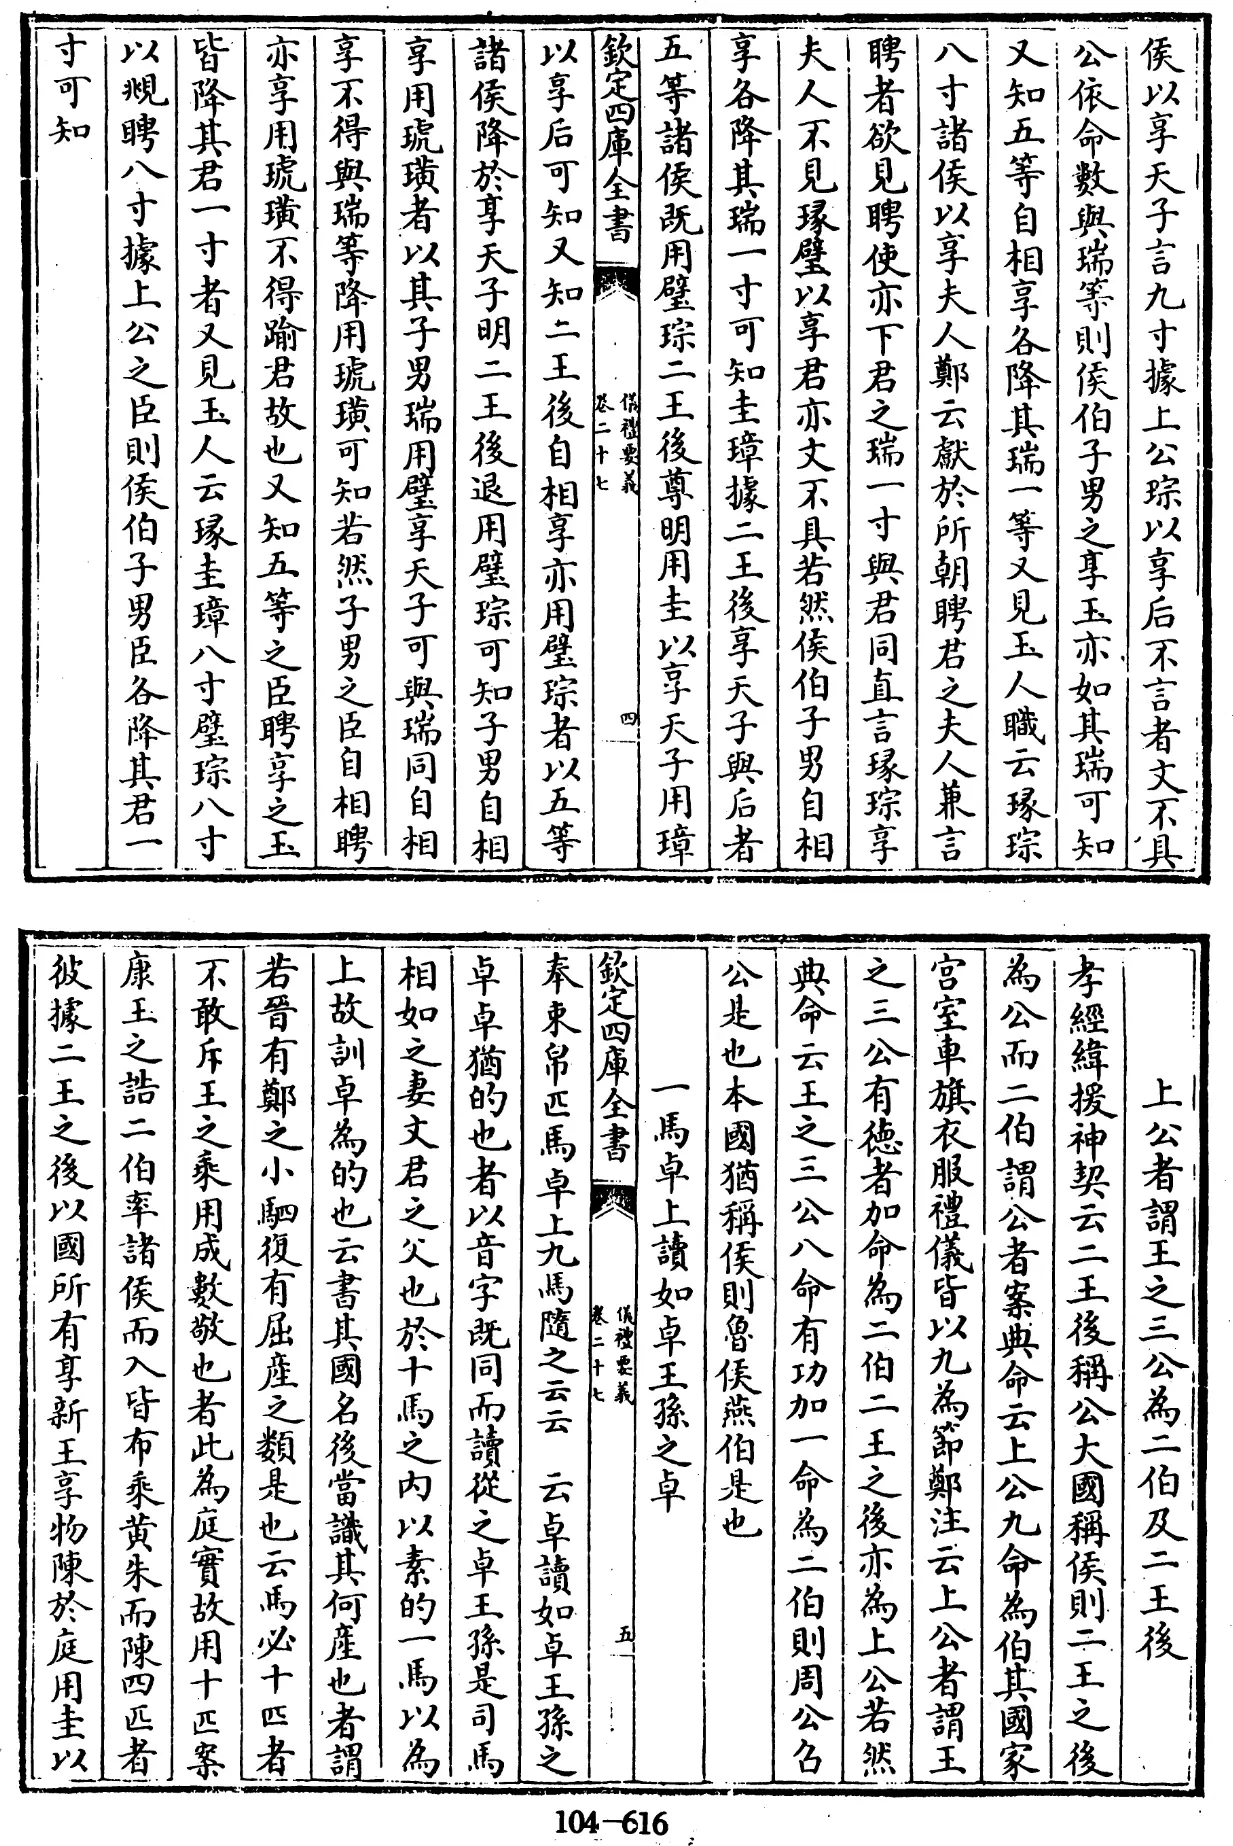 侯以享天子言九寸據上公琮以享后不言者文不具
公依命數與瑞等則侯伯子男之享玉亦如其瑞可知
又知五等自相享各降其瑞一等又見玉人職云瑑琮
八寸諸侯以享夫人鄭云獻於所朝聘君之夫人兼言
聘者欲見聘使亦下君之瑞一寸與君同直言瑑琮享
夫人不見瑑璧以享君亦文不具若然侯伯子男自相
享各降其瑞一寸可知圭璋據二王後享天子與后者
五等諸侯既用璧琮二王後尊明用圭以享天子用璋
欽定四庫全書
儀禮要義
卷二十七
四
以享后可知又知二王後自相享亦用璧琮者以五等
諸侯降於享天子明二王後退用璧琮可知子男自相
享用琥璜者以其子男瑞用璧享天子可與瑞同自相
享不得與瑞等降用琥璜可知若然子男之臣自相聘
亦享用琥璜不得踰君故也又知五等之臣聘享之玉
皆降其君一寸者又見玉人云瑑圭璋八寸璧琮八寸
以覜聘八寸據上公之臣則侯伯子男臣各降其君一
寸可知
上公者謂王之三公為二伯及二王後
孝經緯援神契云二王後稱公大國稱侯則二王之後
為公而二伯謂公者案典命云上公九命為伯其國家
宫室車旗衣服禮儀皆以九為節鄭注云上公者謂王
之三公有德者加命為二伯二王之後亦為上公若然
典命云王之三公八命有功加一命為二伯則周公召
公是也本國猶稱侯則魯侯燕伯是也
一馬卓上讀如卓王孫之卓
欽定四庫全書
儀禮要義
卷二十七
五
奉束帛匹馬卓上九馬隨之云云 云卓讀如卓王孫之
卓卓猶的也者以音字既同而讀從之卓王孫是司馬
相如之妻文君之父也於十馬之内以素的一馬以為
上故訓卓為的也云書其國名後當識其何產也者謂
若晉有鄭之小駟復有屈產之類是也云馬必十匹者
不敢斥王之乘用成數敬也者此為庭實故用十匹案
康王之誥二伯率諸侯而入皆布乘黄朱而陳四匹者
彼據二王之後以國所有享新王享物陳於庭用圭以
104—616